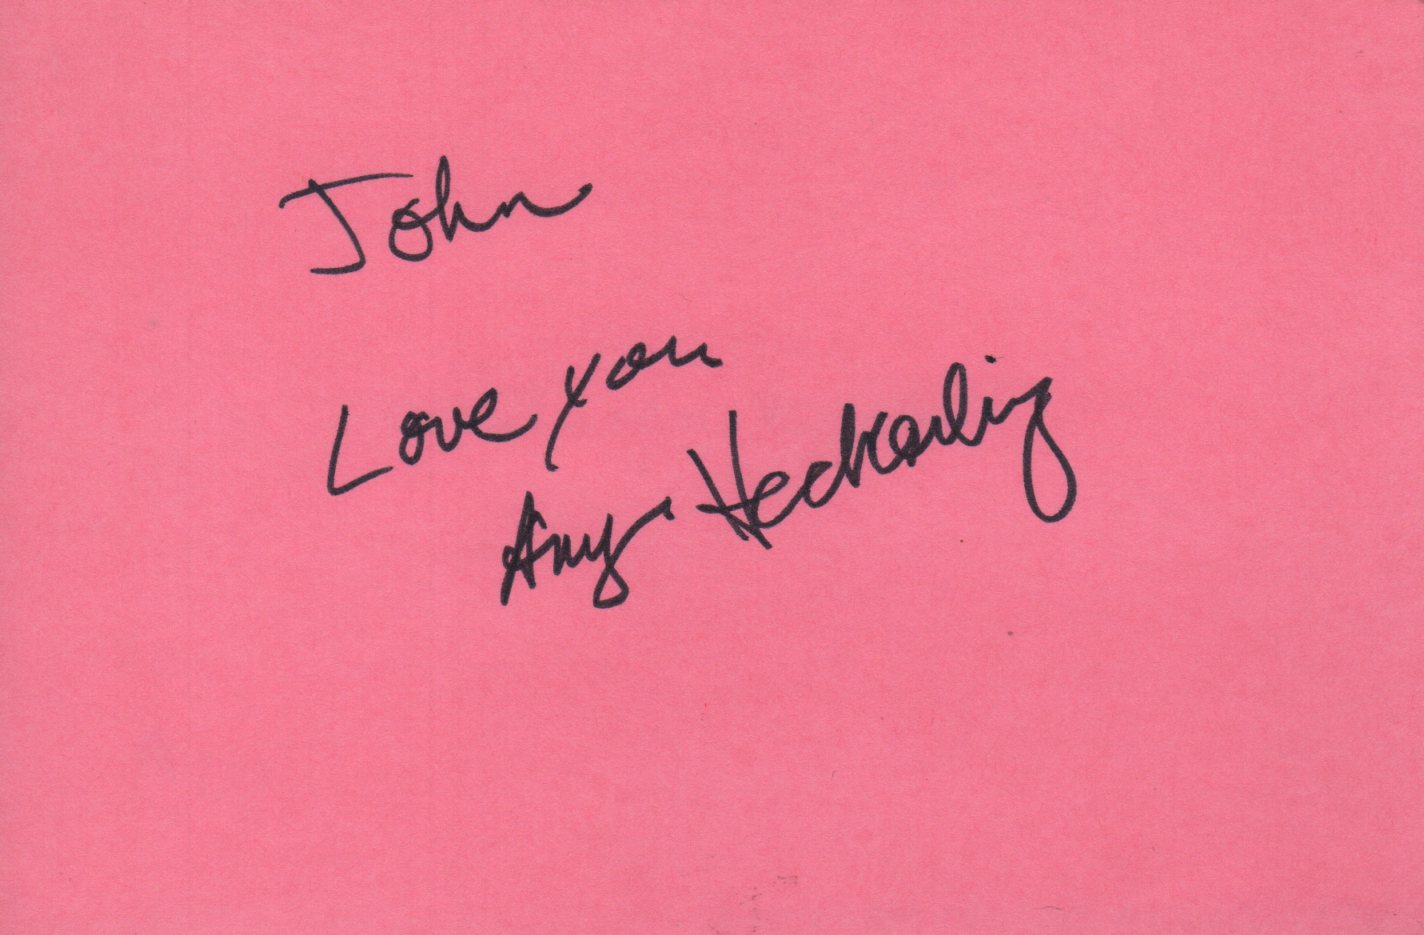 John
Love you
Amy Heckerling